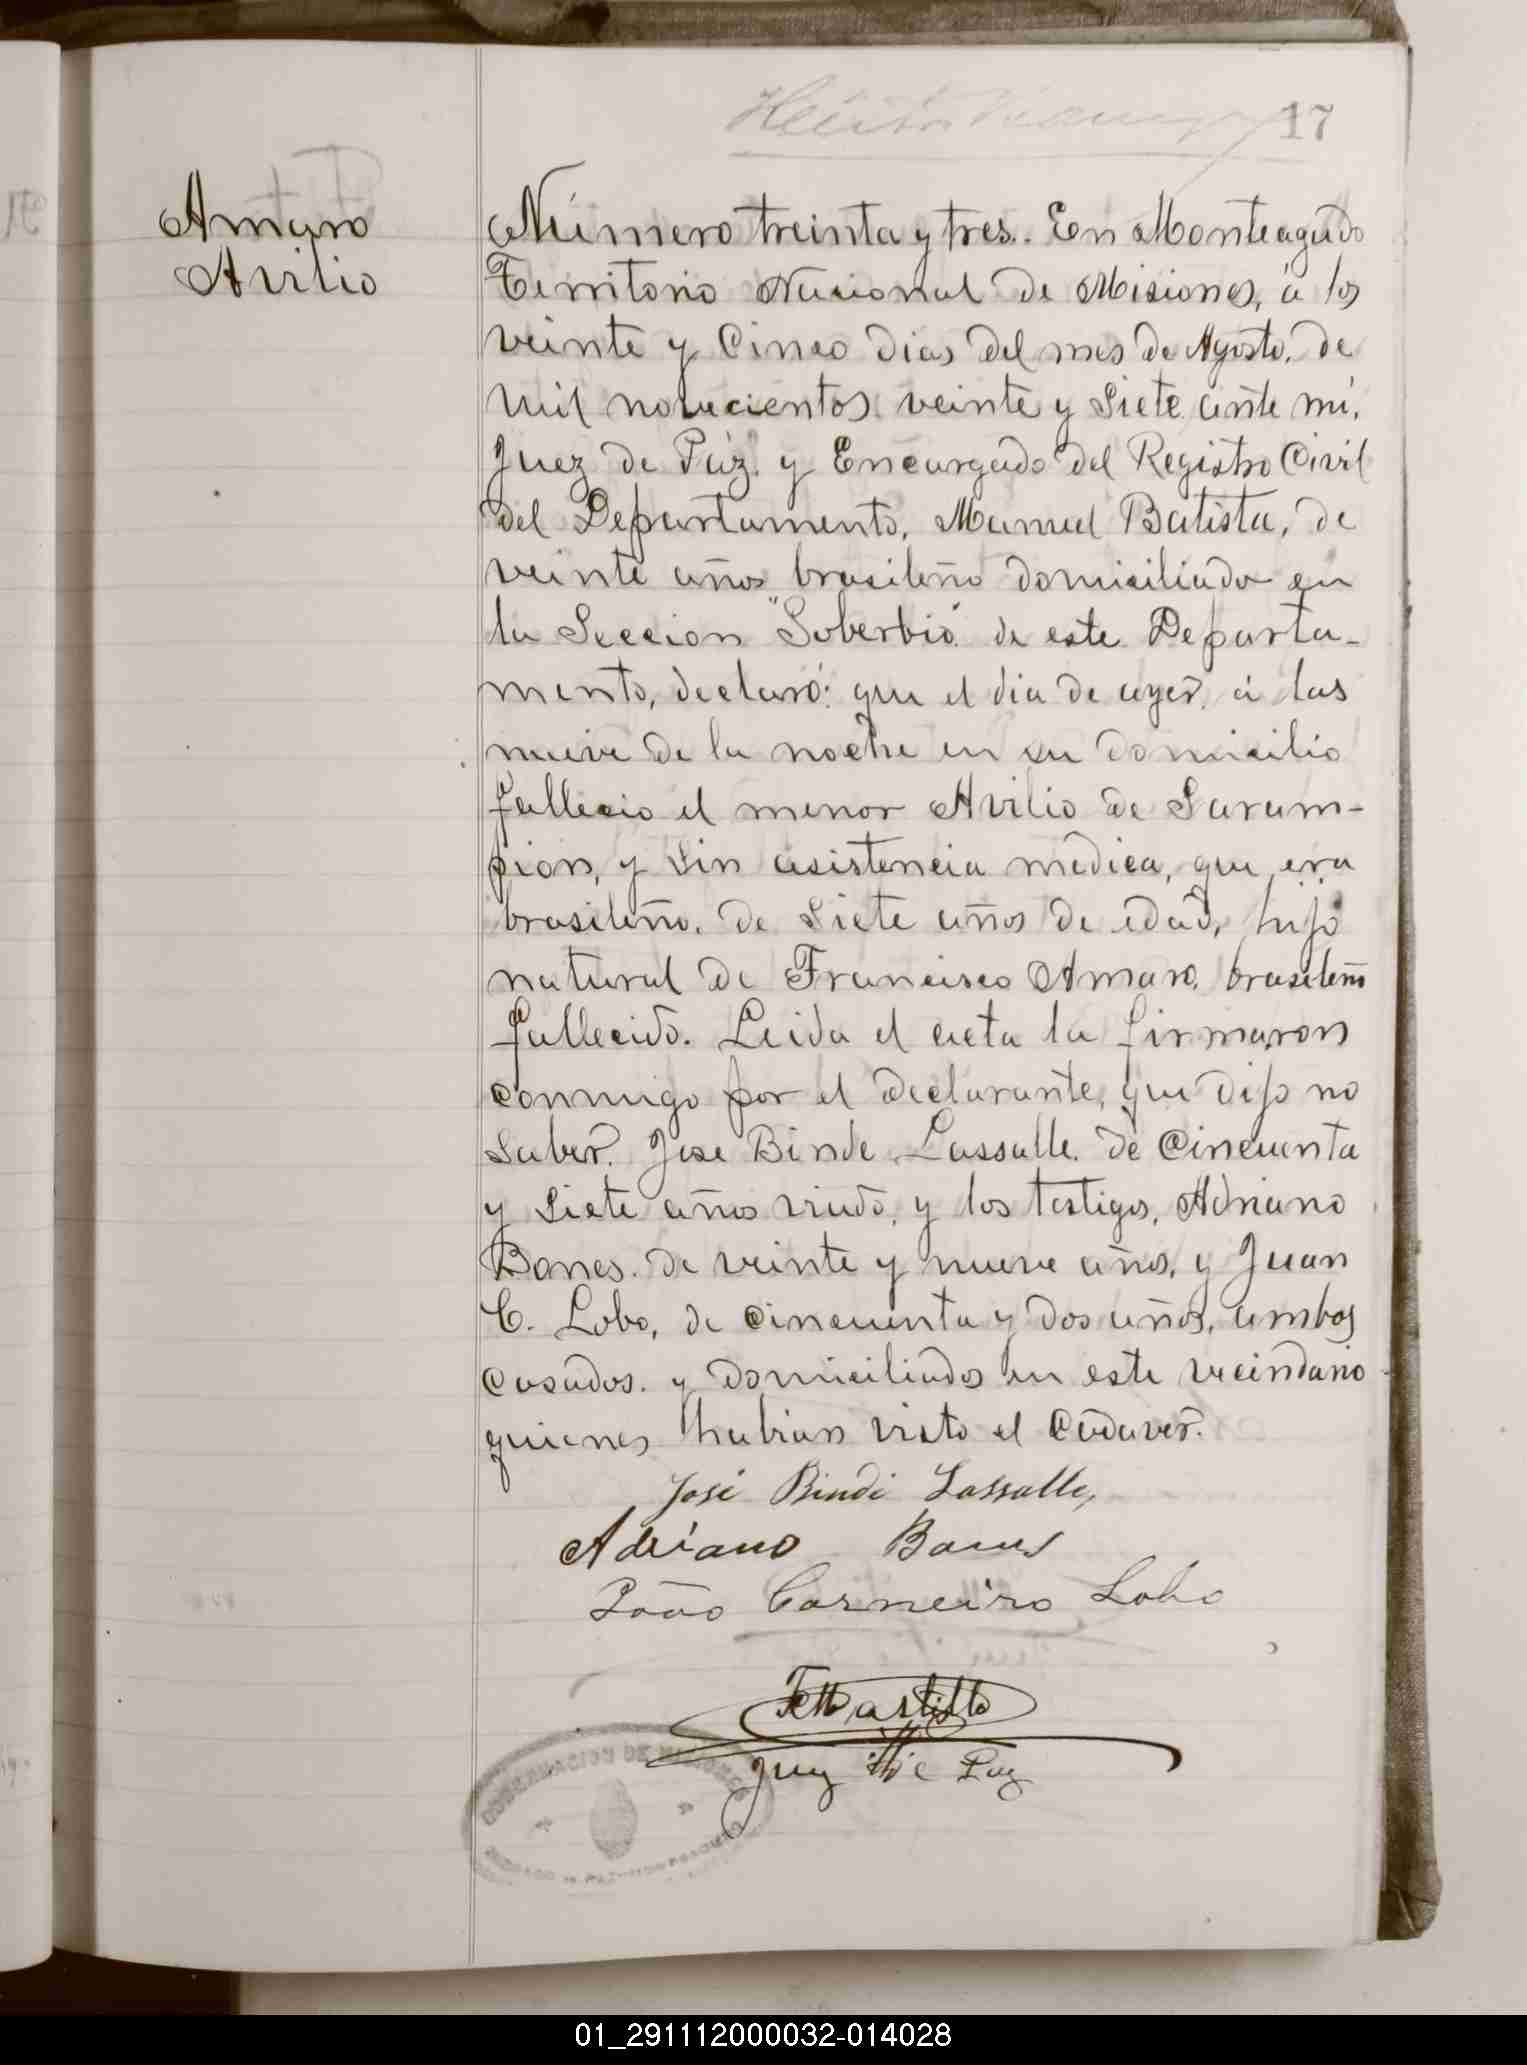 17
Amaro
Avilio
Número treinta y tres. En Monteagudo
Territorio Nacional de Misiones, á los
veinte y Cinco dias del mes de Agosto, de
mil novecientos veinte y Siete ante mí,
Juez de Páz y Encargado del Registro Civil
del Departamento, Manuel Batista, de
veinte años brasileño domiciliado en
la Seccion "Soberbio" de este Departa-
mento, declaró: que el dia de ayer, á las
nueve de la noche en su domicilio
fallecio el menor Avilio de Saram-
pion, y sin asistencia medica, que era
brasileño, de Siete años de edad, hijo
natural de Francisco Amaro, brasileño
fallecido. Leida el acta la firmaron
conmigo por el declarante, que dijo no
saber. Jose Binde Lassalle, de Cincuenta
y Siete años viudo, y los testigos, Adriano
Bones. de veinte y nueve años, y Juan
C. Lobo, de cincuenta y dos años, ambos
casados. y domiciliados en este vecindario
quienes habian visto el Cadaver.
José Binde Lassalle,
Adriano Bones
João Carneiro Lobo
Juez de Paz
01_291112000032-014028